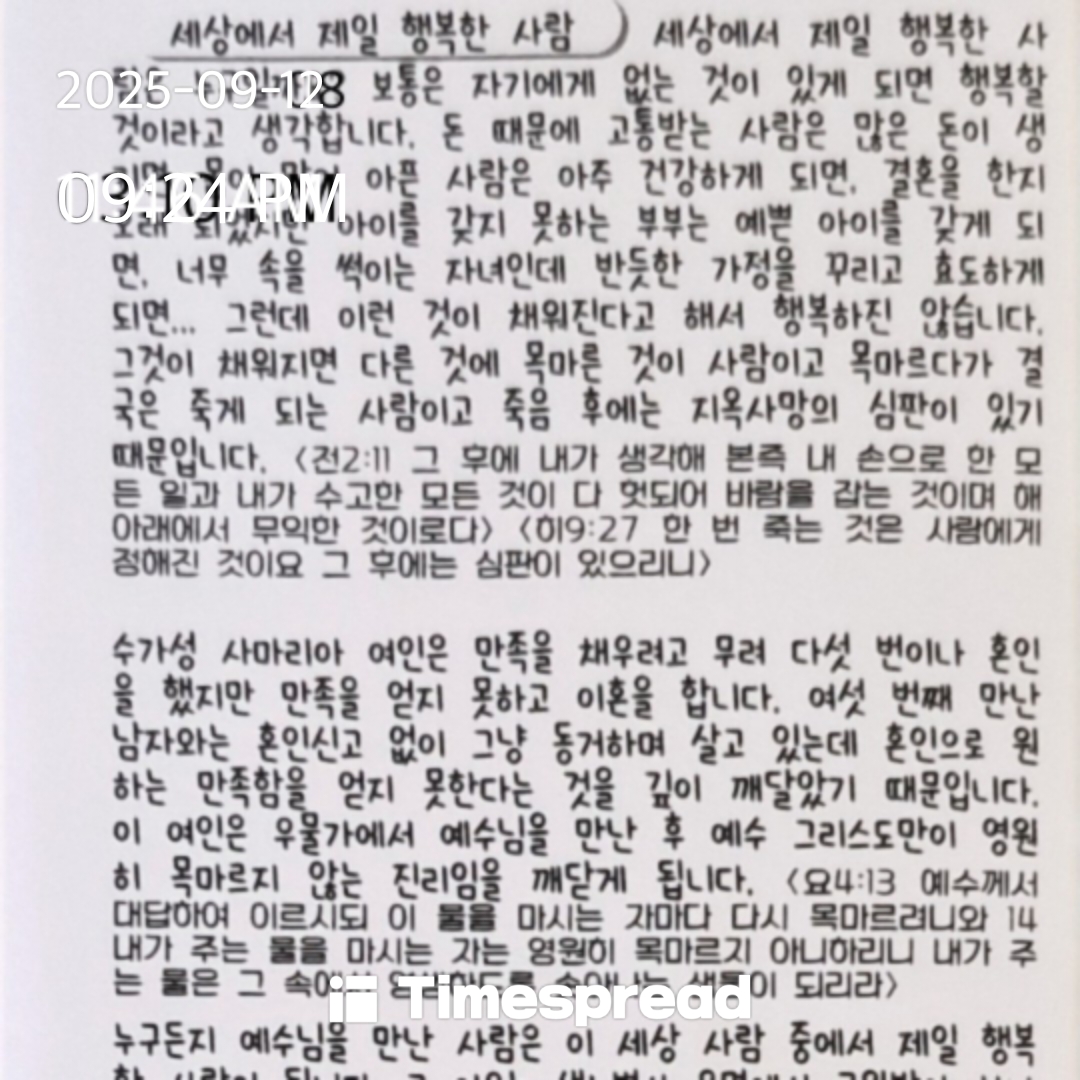 세상에서 제일 행복한 사람 세상에서 제일 행복한 사
2025-09-12
보통은 자기에게 없는 것이 있게 되면 행복할
것이라고 생각합니다. 돈 때문에 고통받는 사람은 많은 돈이 생
아픈 사람은 아주 건강하게 되면, 결혼을 한지
오래 되었지만 아이를 갖지 못하는 부부는 예쁜 아이를 갖게 되
면, 너무 속을 썩이는 자녀인데 반듯한 가정을 꾸리고 효도하게
되면... 그런데 이런 것이 채워진다고 해서 행복하진 않습니다.
그것이 채워지면 다른 것에 목마른 것이 사람이고 목마르다가 결
국은 죽게 되는 사람이고 죽음 후에는 지옥사망의 심판이 있기
때문입니다. <전2:11 그 후에 내가 생각해 본즉 내 손으로 한 모
든 일과 내가 수고한 모든 것이 다 헛되어 바람을 잡는 것이며 해
아래에서 무익한 것이로다> <히9:27 한 번 죽는 것은 사람에게
정해진 것이요 그 후에는 심판이 있으리니>
수가성 사마리아 여인은 만족을 채우려고 무려 다섯 번이나 혼인
을 했지만 만족을 얻지 못하고 이혼을 합니다. 여섯 번째 만난
남자와는 혼인신고 없이 그냥 동거하며 살고 있는데 혼인으로 원
하는 만족함을 얻지 못한다는 것을 깊이 깨달았기 때문입니다.
이 여인은 우물가에서 예수님을 만난 후 예수 그리스도만이 영원
히 목마르지 않는 진리임을 깨닫게 됩니다. <요4:13 예수께서
대답하여 이르시되 이 물을 마시는 자마다 다시 목마르려니와 14
내가 주는 물을 마시는 자는 영원히 목마르지 아니하리니 내가 주
는 물은 그 속에서 되리라>
Timespread
누구든지 예수님을 만난 사람은 이 세상 사람 중에서 제일 행복